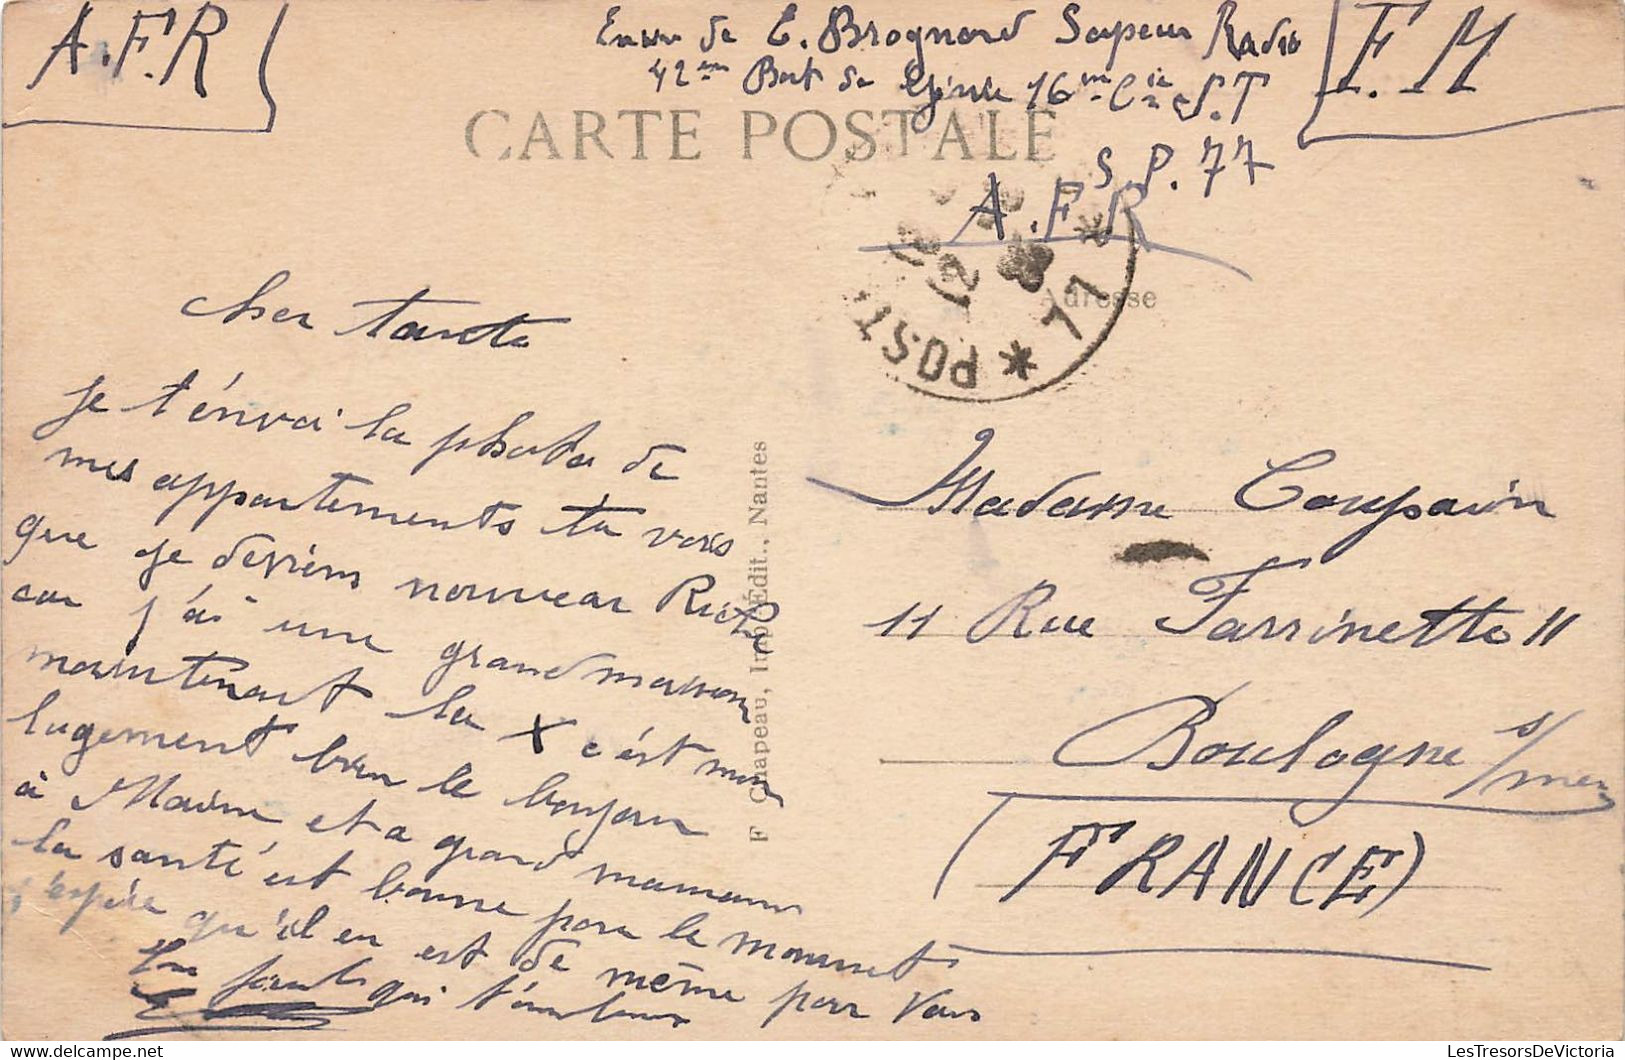 A.F.R
Envoi de E. Brognard Sapeur Radio
42em Bat de Génie 16me Cie S.T
F.M
CARTE POSTALE
S.P.77
A.F.R
* POST
* 77 *
Adresse
cher tante
je t'énvoi la photo de
mes appartements tu vois
que je deviens nouveau Riche
car j'ai une grand maison
maintenant la X c'ést mon
lugement bien le bonjour
à Marine et a grand maman
la santé est bonne pour le moment
j'espére qu'il en est de même pour vous
qui t'embrasse
F. Chapeau, Imp. Édit., Nantes
Madame Coupain
11 Rue Farrinette 11
Boulogne s/mer
(FRANCE)
LesTresorsDeVictoria